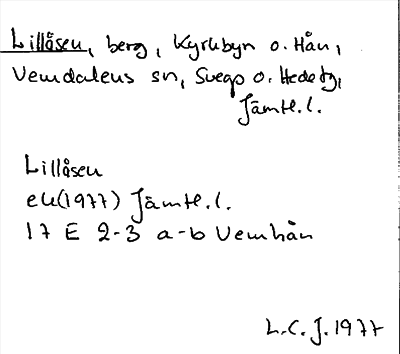 Lillåsen, berg, Kyrkbyn o. Hån,
Vemdalens sn, Svegs o. Hede tg,
Jämtl. l.
Lillåsen
ek (1977) Jämtl. l.
17 E 2-3 a-b Vemhån
L.C. J. 1977